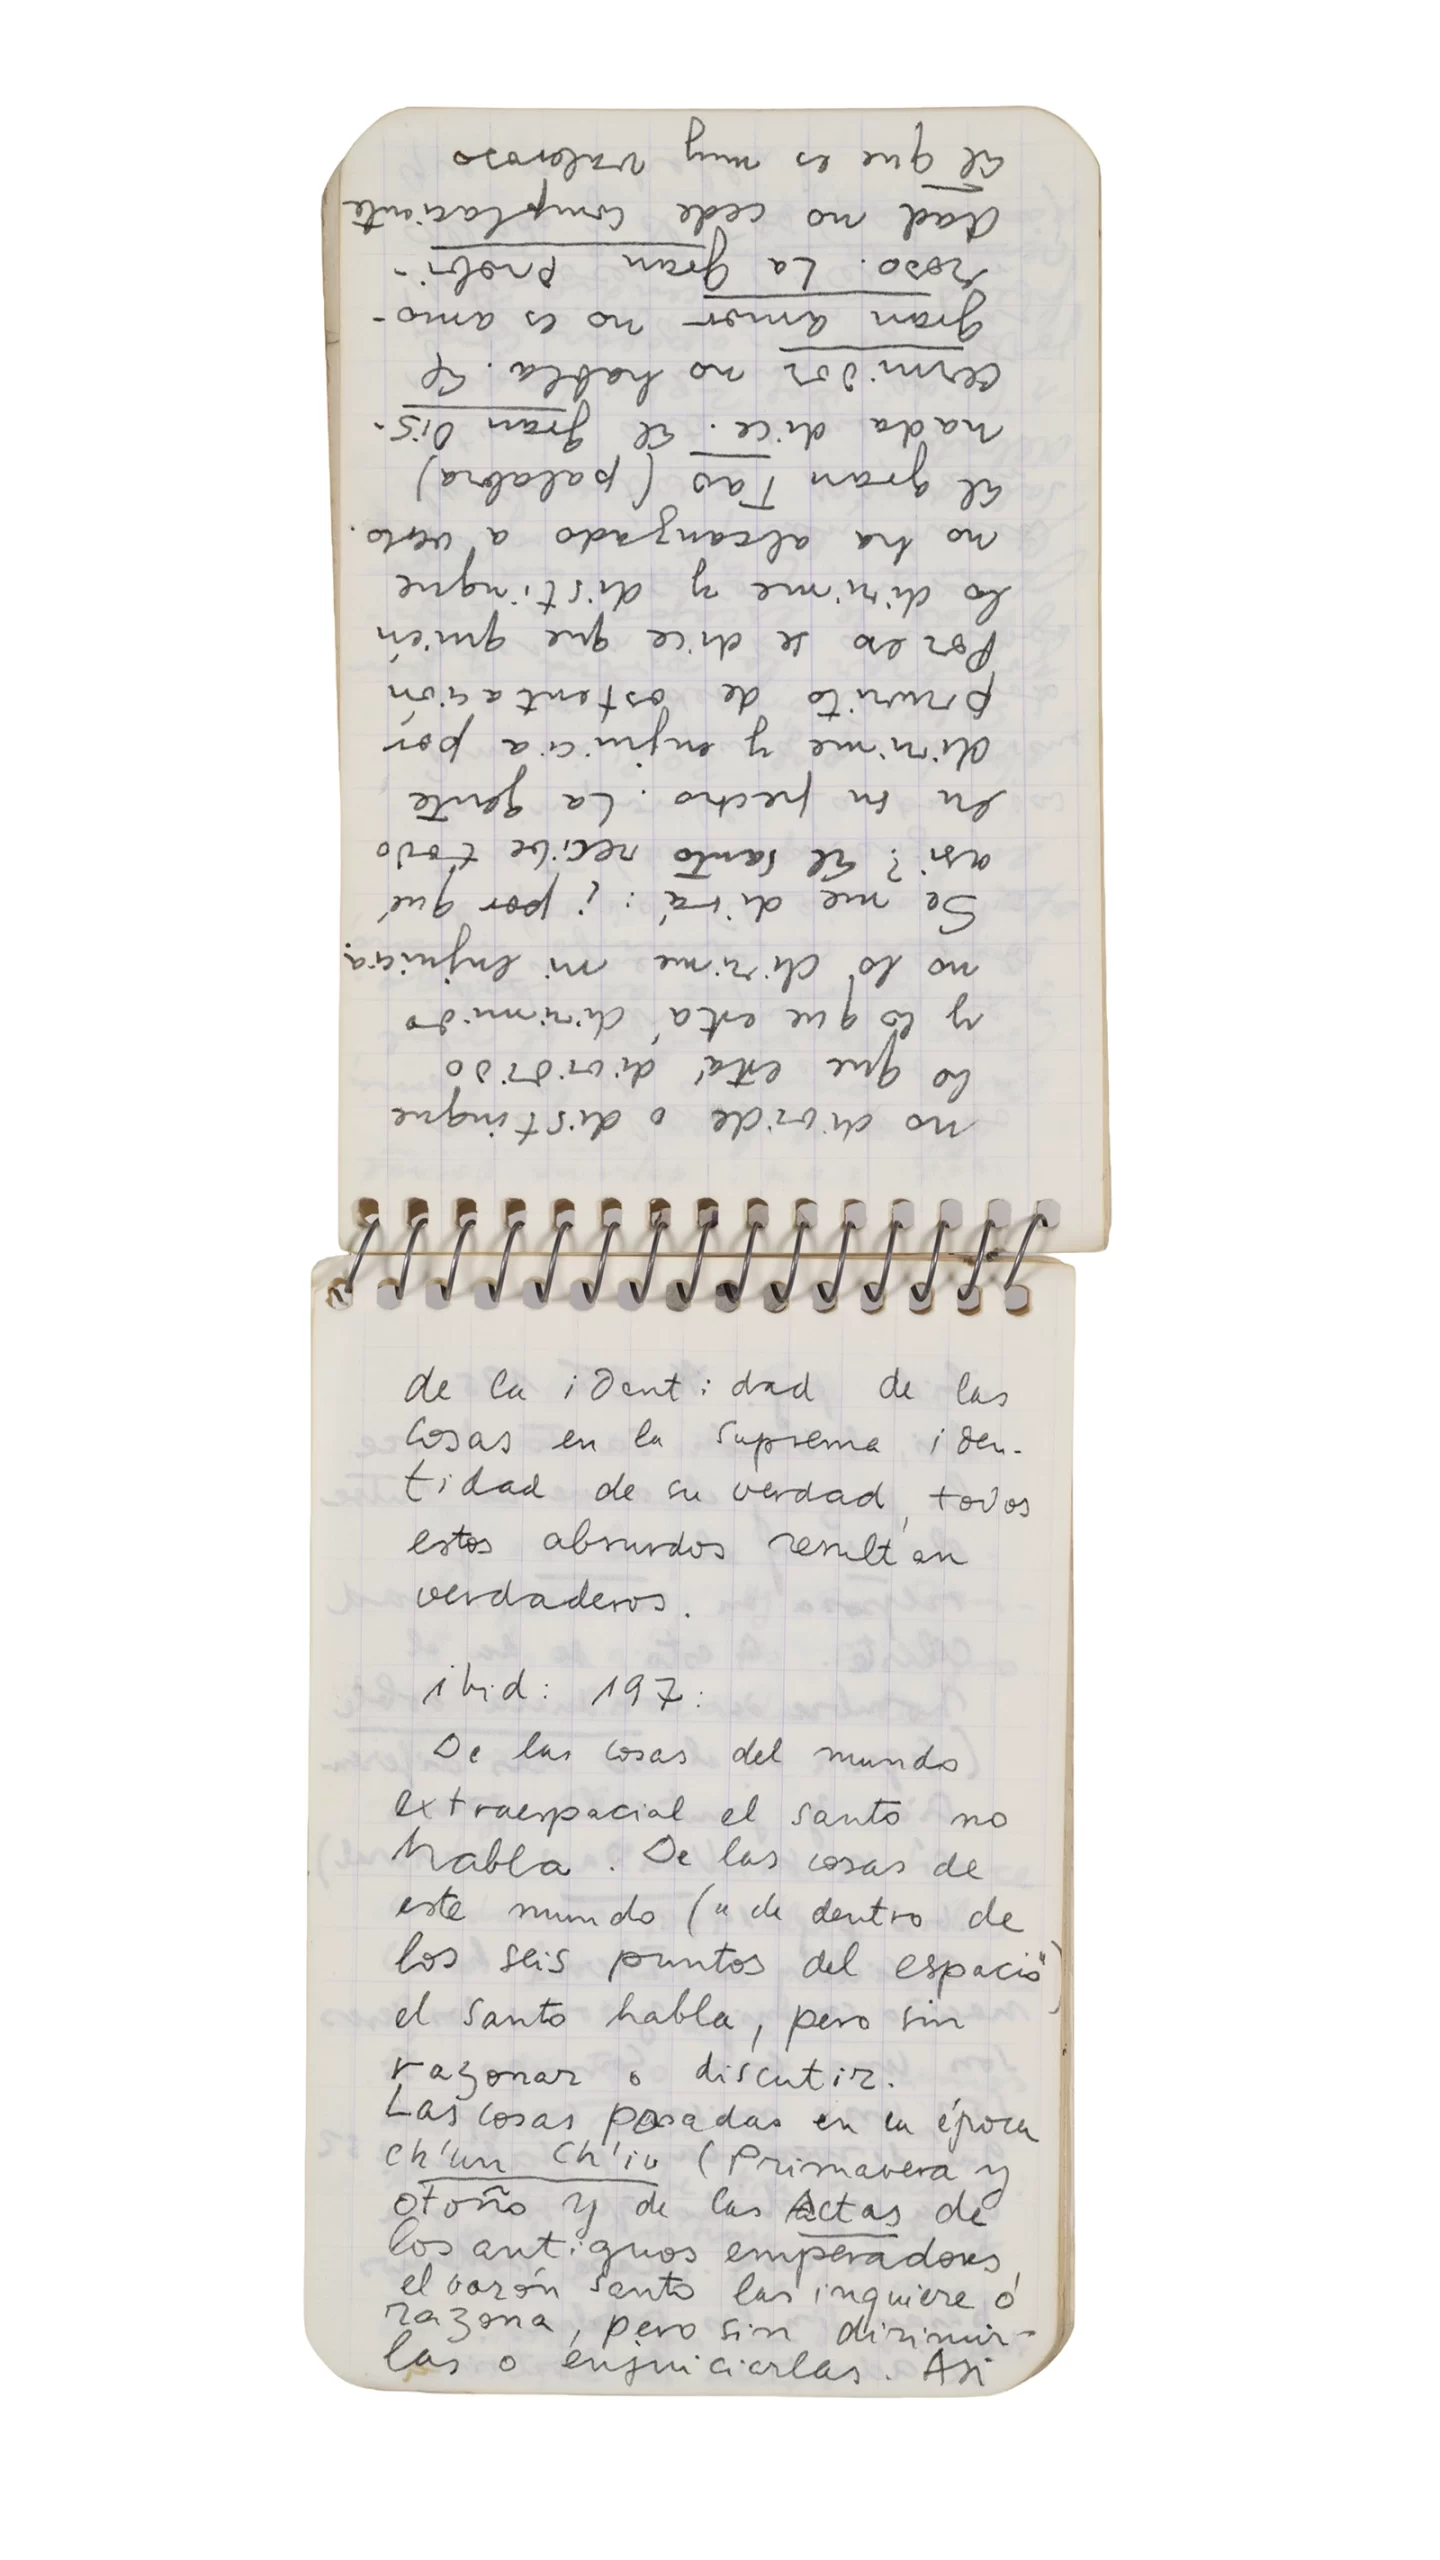 de la identidad de las
cosas en la suprema iden-
tidad de su verdad, todos
estos absurdos resultan
verdaderos.
ibid: 197:
De las cosas del mundo
extraespacial el santo no
habla. De las cosas de
este mundo ("de dentro de
los seis puntos del espacio")
el santo habla, pero sin
razonar o discutir.
Las cosas pasadas en la época
ch'un Ch'iu (Primavera y
otoño y de las Actas de
los antiguos emperadores,
el varón santo las inquiere o
razona, pero sin dirimir-
las o enjuiciarlas. Asi
no divide o distingue
lo que está dividido
y lo que está dirimido
no lo dirime ni enjuicia.
Se me dirá: ¿por qué
asi? El santo recibe todo
en su pecho. La gente
dirime y enjuicia por
prurito de ostentación
Por eso se dice que quién
lo dirime y distingue
no ha alcanzado a verlo.
El gran Tao (palabra)
nada dice. El gran Dis-
cernidor no habla. El
gran amor no es amo-
roso. La gran Probi-
dad no cede complaciente
El que es muy valeroso